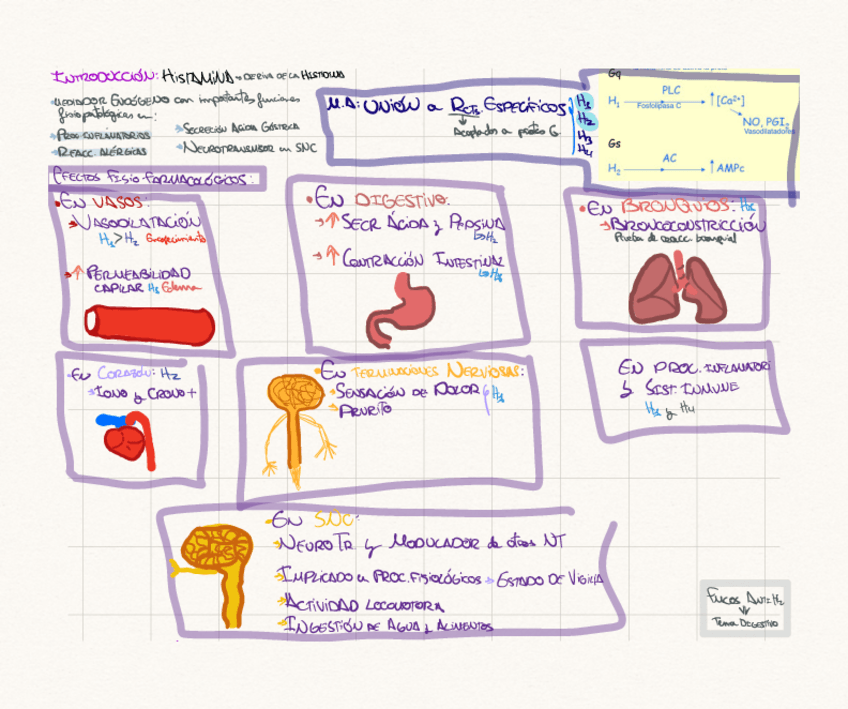 INTRODUCCIÓN: HISTAMINA → DERIVA DE LA HISTIDINA
MEDIADOR ENDÓGENO con importantes funciones
fisiopatológicas en:
PROC INFLAMATORIOS
REACC ALÉRGICAS
SECRECIÓN ÁCIDA GÁSTRICA
NEUROTRANSMISOR en SNC
M.A: UNIÓN a RCTS. ESPECÍFICOS
Acoplados a proteína G
H1
H2
H3
H4
Gq
PLC
H1 Fosfolipasa C ↑ [Ca2+]
NO, PGI2
Vasodilatadores
Gs
AC
H2 ↑ AMPc
EFECTOS FISIO-FARMACOLÓGICOS:
EN VASOS:
VASODILATACIÓN
H1 > H2 Enrojecimiento
↑ PERMEABILIDAD
CAPILAR H1 Edema
EN DIGESTIVO:
→ ↑ SECR ÁCIDA y PEPSINA
↳ H2
→ ↑ CONTRACCIÓN INTESTINAL
↳ H1
EN BRONQUIOS: H1
→ BRONCOCONSTRICCIÓN
Prueba de reacc. bronquial
EN CORAZÓN: H2
→ IONO y CRONO +
EN TERMINACIONES NERVIOSAS:
SENSACIÓN DE DOLOR H1
PRURITO
EN PROC. INFLAMATORI
y SIST. INMUNE
H1 y H4
EN SNC:
→ NEURO TR y MODULADOR de otros NT
→ IMPLICADO en PROC. FISIOLÓGICOS → ESTADO DE VIGILIA
→ ACTIVIDAD LOCOMOTORA
→ INGESTIÓN DE AGUA y ALIMENTOS
FMCOS ANTI H2
Tema DIGESTIVO